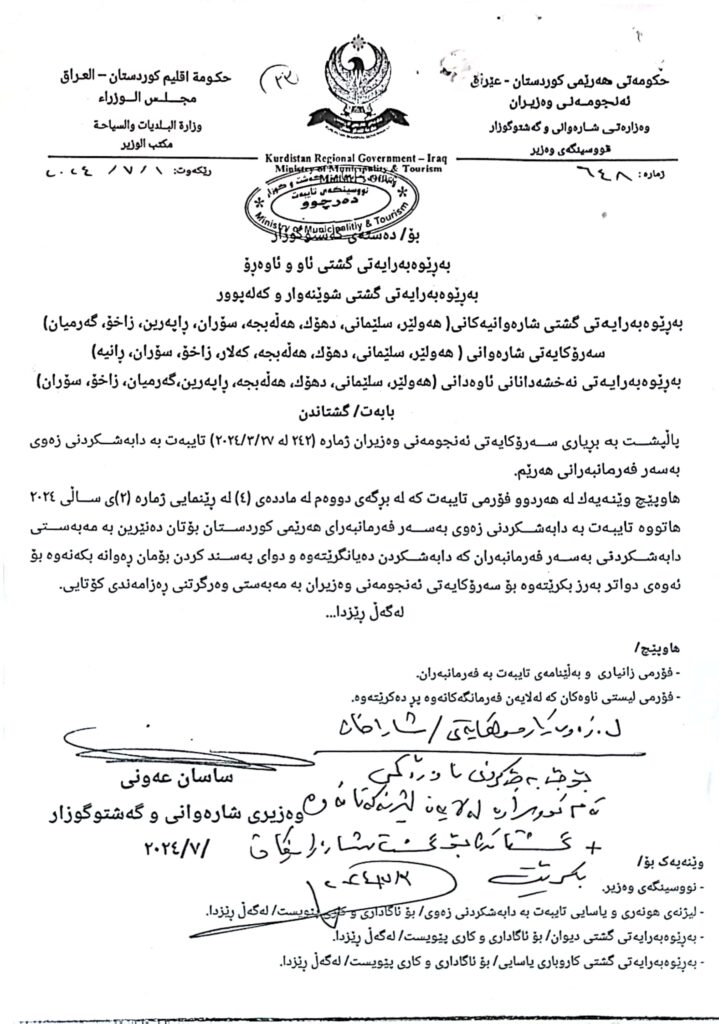 حكومەتی هەرێمی كوردستان - عێراق
ئەنجومـەنی وەزیـران
وەزارەتـی شارەوانی و گەشتوگوزار
نووسینگەی وەزیر
ژمارە: ٦٤٨
حكومة اقليم كوردستان – العراق
مجلـــس الــوزراء
وزارة البلديات والسياحة
مكتب الوزير
ریكەوت: ٢٠٢٤/٧/١
Kurdistan Regional Government – Iraq
Ministry of Municipality & Tourism
نووسینگەی تایبەت
دەرچوو
Ministry of Municipality & Tourism
بۆ/ دەستەی گەشتوگوزار
بەڕێوەبەرایەتی گشتی ئاو و ئاوەڕۆ
بەڕێوەبەرایەتی گشتی شوێنەوار و كەلەپوور
بەڕێوەبەرایەتی گشتی شارەوانیەكانی( هەولێر، سلێمانی، دهۆك، هەڵەبجە، سۆران، ڕاپەرین، زاخۆ، گەرمیان)
سەرۆكایەتی شارەوانی ( هەولێر، سلێمانی، دهۆك، هەڵەبجە، كەلار، زاخۆ، سۆران، ڕانیە)
بەڕێوەبەرایەتی نەخشەدانانی ئاوەدانی (هەولێر، سلێمانی، دهۆك، هەڵەبجە، ڕاپەرین،گەرمیان، زاخۆ، سۆران)
بابەت/ گشتاندن
پاڵپشت بە بڕیاری ســەرۆكایەتی ئەنجومەنی وەزیران ژمارە (٢٤٢ لە ٢٠٢٤/٣/٢٧) تایبەت بە دابەشكردنی زەوی
بەسەر فەرمانبەرانی هەرێم.
هاوپێچ وێنەیەك لە هەردوو فۆرمی تایبەت كە لە بڕگەی دووەم لە ماددەی (٤) لە ڕێنمایی ژمارە (٢)ی ســاڵی ٢٠٢٤
هاتووە تایبەت بە دابەشــكردنی زەوی بەســەر فەرمانبەرای هەرێمی كوردســتان بۆتان دەنێرین بە مەبەســتی
دابەشــكردنی بەســەر فەرمانبەران كە دابەشــكردن دەیانگرێتەوە و دوای پەســند كردن بۆمان ڕەوانە بكەنەوە بۆ
ئەوەی دواتر بەرز بكرێتەوە بۆ سەرۆكایەتی ئەنجومەنی وەزیران بە مەبەستی وەرگرتنی ڕەزامەندی كۆتایی.
لەگەڵ ڕێزدا...
هاوپێچ/
- فۆڕمی زانیاری و بەڵێنامەی تایبەت بە فەرمانبەران.
- فۆرمی لیستی ناوەكان كە لەلایەن فەرمانگەكانەوە پڕ دەكرێتەوە.
ساسان عەونی
وەزیری شارەوانی و گەشتوگوزار
٢٠٢٤/٧/
وێنەیەك بۆ/
- نووسینگەی وەزیر.
- لیژنەی هونەری و یاسایی تایبەت بە دابەشكردنی زەوی/ بۆ ئاگاداری و كاری پێویست/ لەگەڵ ڕێزدا.
- بەڕێوەبەرایەتی گشتی دیوان/ بۆ ئاگاداری و كاری پێویست/ لەگەڵ ڕێزدا.
- بەڕێوەبەرایەتی گشتی كاروباری یاسایی/ بۆ ئاگاداری و كاری پێویست/ لەگەڵ ڕێزدا.